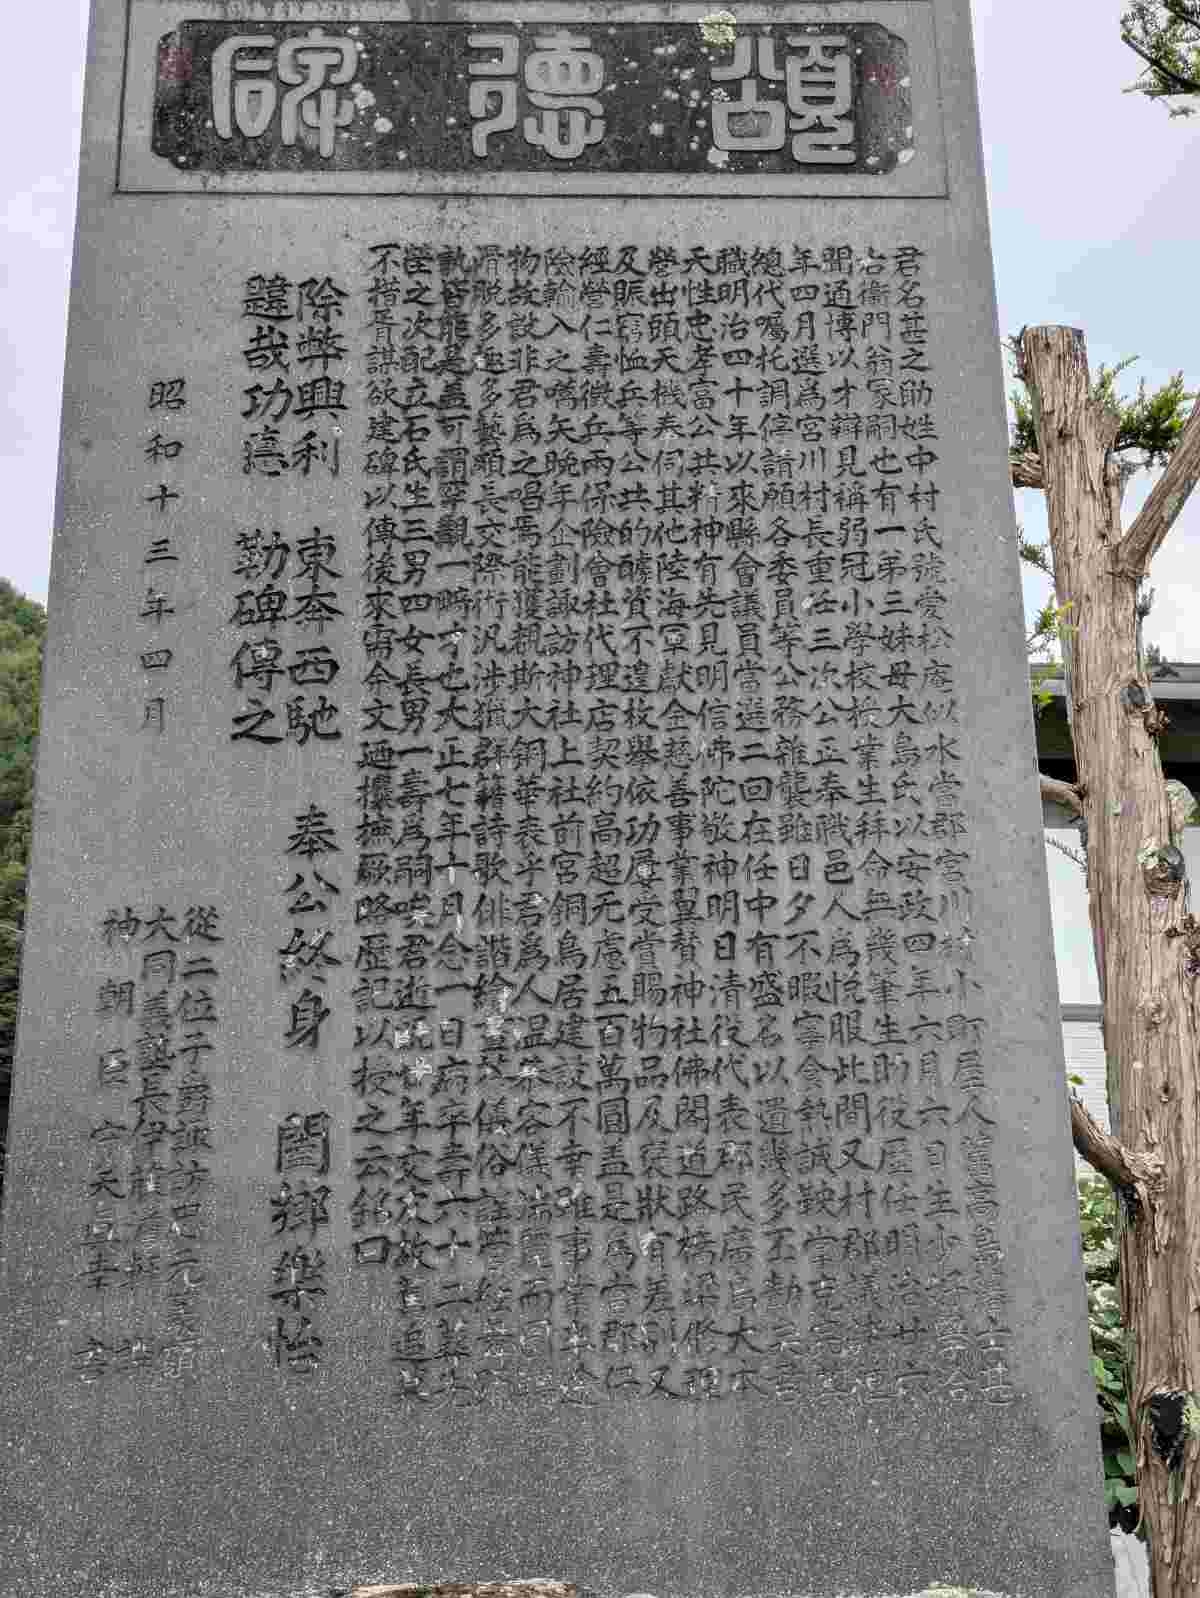 頌德碑
君名甚之助姓中村氏號愛松庵似水當郡宮川村小町屋人舊高島藩士甚
右衞門翁冢嗣也有一弟三妹母大島氏以安政四年六月六日生少
聞通博以才辯見稱弱冠小學校授業生拜命無幾筆生助役歷任明治廿六
年四月選爲宮川村長重任三次公正奉職邑人爲悅服此間又村郡議
總代囑托調停請願各委員等公務雜襲雖日夕不暇寧食熱誠鞅掌
職明治四十年以來縣會議員當選二回在任中有盛名以遺幾多丕勳
天性忠孝富公共精神有先見明信佛陀敬神明日清役代表郡民廣島大本
營出頭天機奉伺其他陸海軍獻金慈善事業翼贊神社佛閣道路橋梁修理
及賑窮恤兵等公共的醵資不遑枚擧依功屢受賞賜物品及褒狀有差別又
經營仁壽徵兵兩保險會社代理店契約高超无慮五百萬圓盖是爲當郡保
險輸入之嚆矢晚年企劃諏訪神社上社前宮銅鳥居建設不幸雖事業半途
物故設非君爲之唱焉能獲覩斯大銅華表乎君爲人温恭容儀端麗而圓
滑脱多趣多藝顯長交際術汎涉獵群籍詩歌俳諧繪畫
孰皆能是盖可謂罕觀一時才也大正七年十月念一日病卒壽六十二葬先
塋之次配立石氏生三男四女長男一壽爲嗣嗟君逝年交友故舊追慕
不措胥謀欲建碑以傳後來需余文廼攈摭厥略歷記以授之云銘曰
除弊興利　東奔西馳　奉公終身　闔鄉樂怡
韙哉功德　勒碑傳之
昭和十三年四月
從二位子爵諏訪忠元篆額
大同義塾長伊
神朝臣